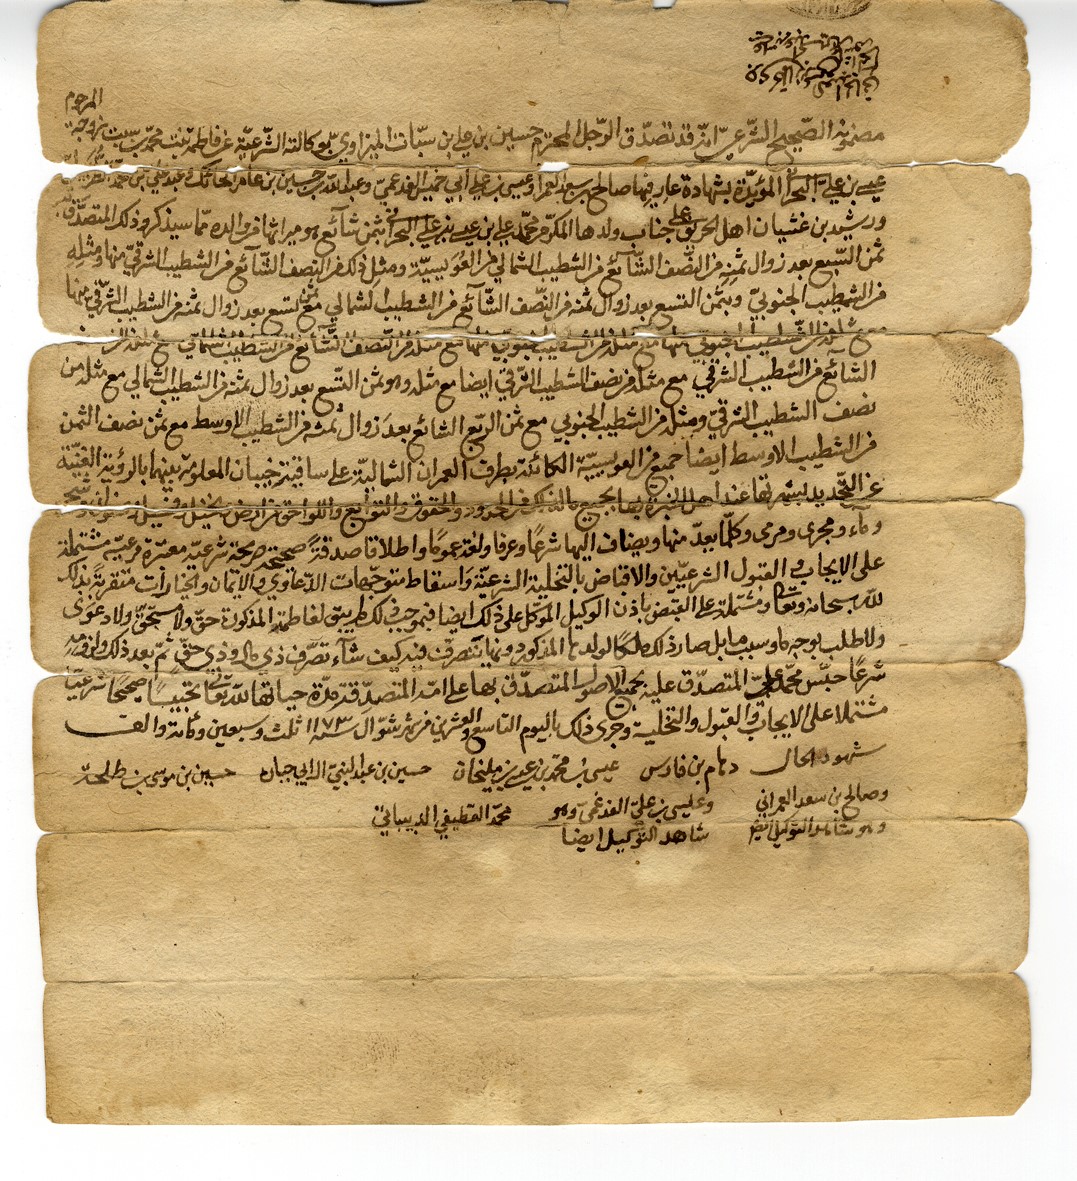 المرحوم
مضمونه الصحيح الشرعيّ انّه قد تصدّق الرّجل المحترم حسين بن علي بن سبّات الميزاوي بوكالته الشّرعيّة عن فاطمة بنت محمّد بن سبت زوجة
عيسى بن عليّ البحراني المؤيّدة بشهادة عارفيها صالح بن سعد العمراني وعيسى بن علي الفدغمي وعبدالله بن حسين بن عامر الحائك
ورشيد بن غشيان اهل الحريق على جناب ولدها المكرّم محمّد علي بن عيسى بن علي البحراني بثمن شائع هو ميراثها من والده ممّا سيذكر وذلك المتصدّق به
ثمن التّسع بعد زوال ثمنه من النّصف الشّائع من الشطيب الشمالي من العُوَيسيّة ومثل ذلك من النصف الشّائع من الشطيب الشرقيّ منها ومثله
من الشطيب الجنوبيّ وبثمن التسع بعد زوال ثمنه من النّصف الشّائع من الشطيب الشمالي مع ثمن تسع بعد زوال ثمنه من الشطيب الشّرقي منها
مع مثله من الشّطيب الجنوبي منها مع مثله من الشطيب الجنوبي منها مع مثله من النّصف الشّائع من الشطيب الشمالي مع مثله من
الشائع من الشطيب الشرقي مع مثله من نصف الشطيب الشّرقي ايضا مع مثله وهو ثمن التّسع بعد زوال ثمنه من الشطيب الشمالي مع مثله من
نصف الشطيب الشرقيّ ومثله من الشطيب الجنوبي مع ثمن الربّع الشائع بعد زوال ثمنه من الشطيب الاوسط مع ثمن نصف الثمن
من الشطيب الاوسط ايضا جميع من العويسيّة الكائنة بطرف العمران الشماليّة على ساقية خيبان المعلومة بينهما بالرؤية الغنيّة
عن التّحديد بشهرتها عند اهل الخبرة بها بجميع ما لذلك من الحدود والحقوق والتوابع واللواحق من ارض ونخيل وفسيل
وماء ومجرى ومرمى وكلّما يعدّ منها ويضاف اليها شرعًا وعرفا ولغة عمومًا واطلاقا صدقةً صحيحة صريحة شرعيّة معتبرة مرعيّة مشتملة
على الايجاب والقبول الشرعيّين والاقباض بالتخلية الشرعيّة واسقاط متوجّهات الدّعاوي والايمان والخيارات متقربةً بذلك
للّه سبحانه وتعالى ومُشتملة على القبض باذن الوكيل الموكّل على ذلك ايضا فبموجب ذلك لم يبق لفاطمة المذكورة حقّ ولا مستحقّ ولا دعوى
ولا طلب بوجه ولا سبب بل صار ذلك ملكًا لولدها المذكور ومهما يتصرف فيه كيف شآء تصرّف ذي مال وذي حقّ ثمّ بعد ذلك ولزومه
شرعًا حبّس محمّد عليّ المتصدّق عليه بجميع الاصول المتصدّق بها على امّه المتصدّقة مدّة حياتها للّه تعالى تحبيسًا صحيحًا شرعيّا
مشتملا على الايجاب والقبول والتخلية وجرى ذلك باليوم التاسع والعشرين من شهر شوّال سنة ١١٧٣ ثلث وسبعين ومائة والف
شهود الحال دهام بن فارس عيسى بن محمّد بن عيسى بن مليخان حسين بن عبد النبيّ الدالي جباره حسين بن موسى بن طلحه
وصالح بن سعد العمراني وعيسى بن عليّ الفدغميّ وهو محمّد القطيفي الدبيباني
وهو شاهد التوكيل ايضا شاهد التّوكيل ايضا